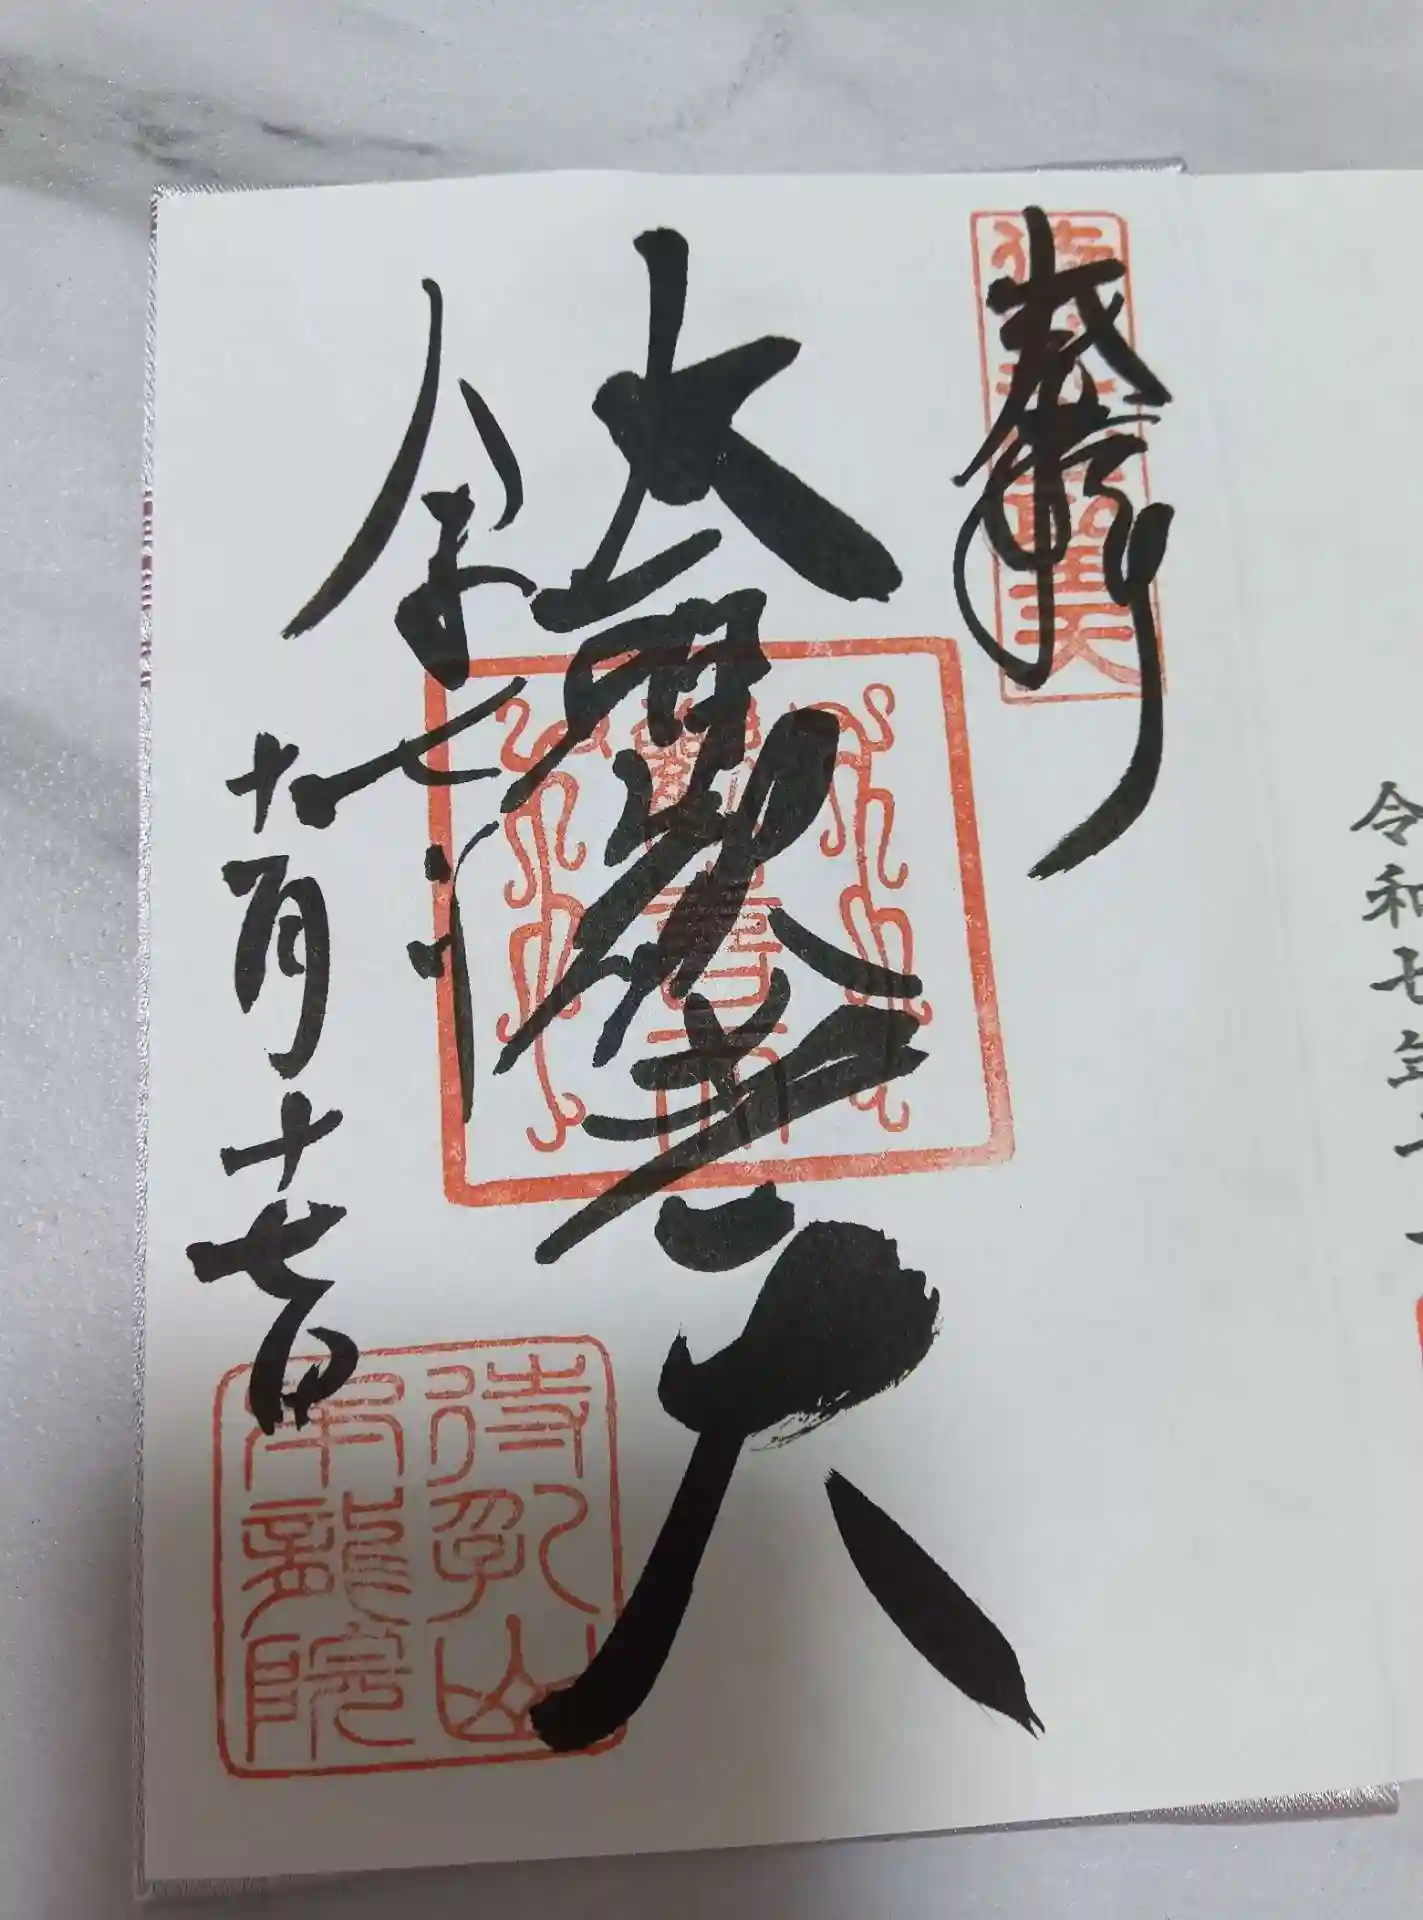 令和七年十一
奉拝
大聖歓喜天
令和七年
十一月十七日
待乳山
本龍院